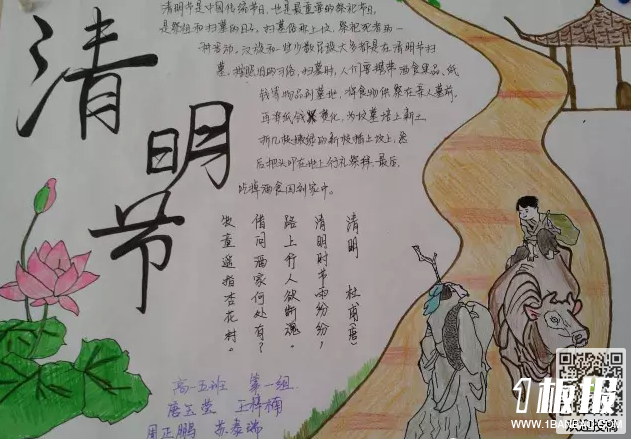 清明节
清明节是中国传统节日,也是最重要的祭祀节日,
是祭祖和扫墓的日子。扫墓俗称上坟,祭祀死者的一
种活动。汉族和一些少数民族大多都是在清明节扫
墓。按照旧的习俗,扫墓时,人们要携带酒食果品、纸
钱等物品到墓地,将食物供祭在亲人墓前,
再将纸钱焚化,为坟墓培上新土,
折几枝嫩绿的新枝插上坟上,然
后把头叩在地上行礼祭拜,最后,
吃掉酒食回到家中。
清明 杜甫(唐)
清明时节雨纷纷,
路上行人欲断魂。
借问酒家何处有?
牧童遥指杏花村。
高一五班 第一组
唐玉莹 王梓楠
周正鹏 苏泰瑞
1板报
WWW.1BANBAO.COM